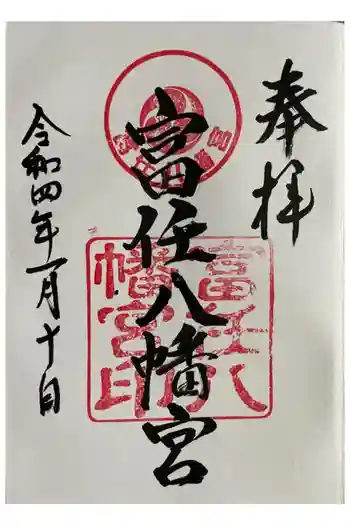 奉拝
富任八幡宮
富任八
幡宮印
令和四年一月十日